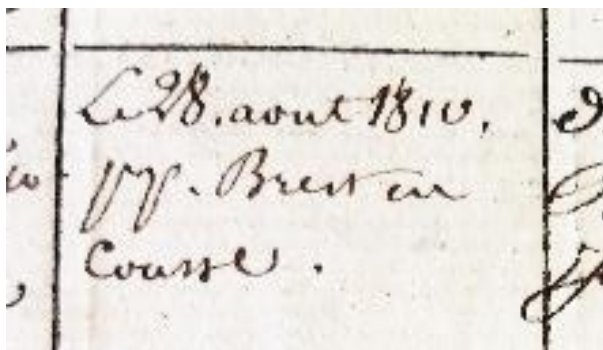 Le 28. aout 1810.
pp. Brest en
Course.